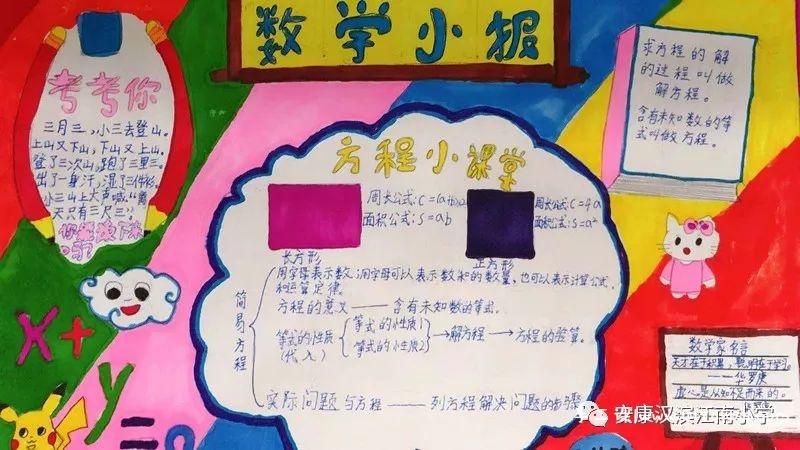 数学小报
考考你
三月三，小三去登山。
上山又下山，下山又上山。
登了三次山，跑了三里三。
出了一身汗，湿了三件衫。
小三山上大声喊：“离
天只有三尺三”。
你能读下来
吗？
求方程的解
的过程叫做
解方程。
含有未知数的等
式叫做方程。
方程小课堂
周长公式：C=(a+b)×2
面积公式：S=ab
长方形
周长公式：C=4a
面积公式：S=a²
正方形
简易方程
用字母表示数：用字母可以表示数和的数量，也可以表示计算公式
和运算定律
方程的意义——含有未知数的等式。
等式的性质
（代入）
等式的性质1
等式的性质2
→解方程→方程的验算。
实际问题与方程——列方程解决问题的步骤
x+
y
=
数学家名言
天才在于积累，聪明在于学习。
——华罗庚
安康汉滨江南小学